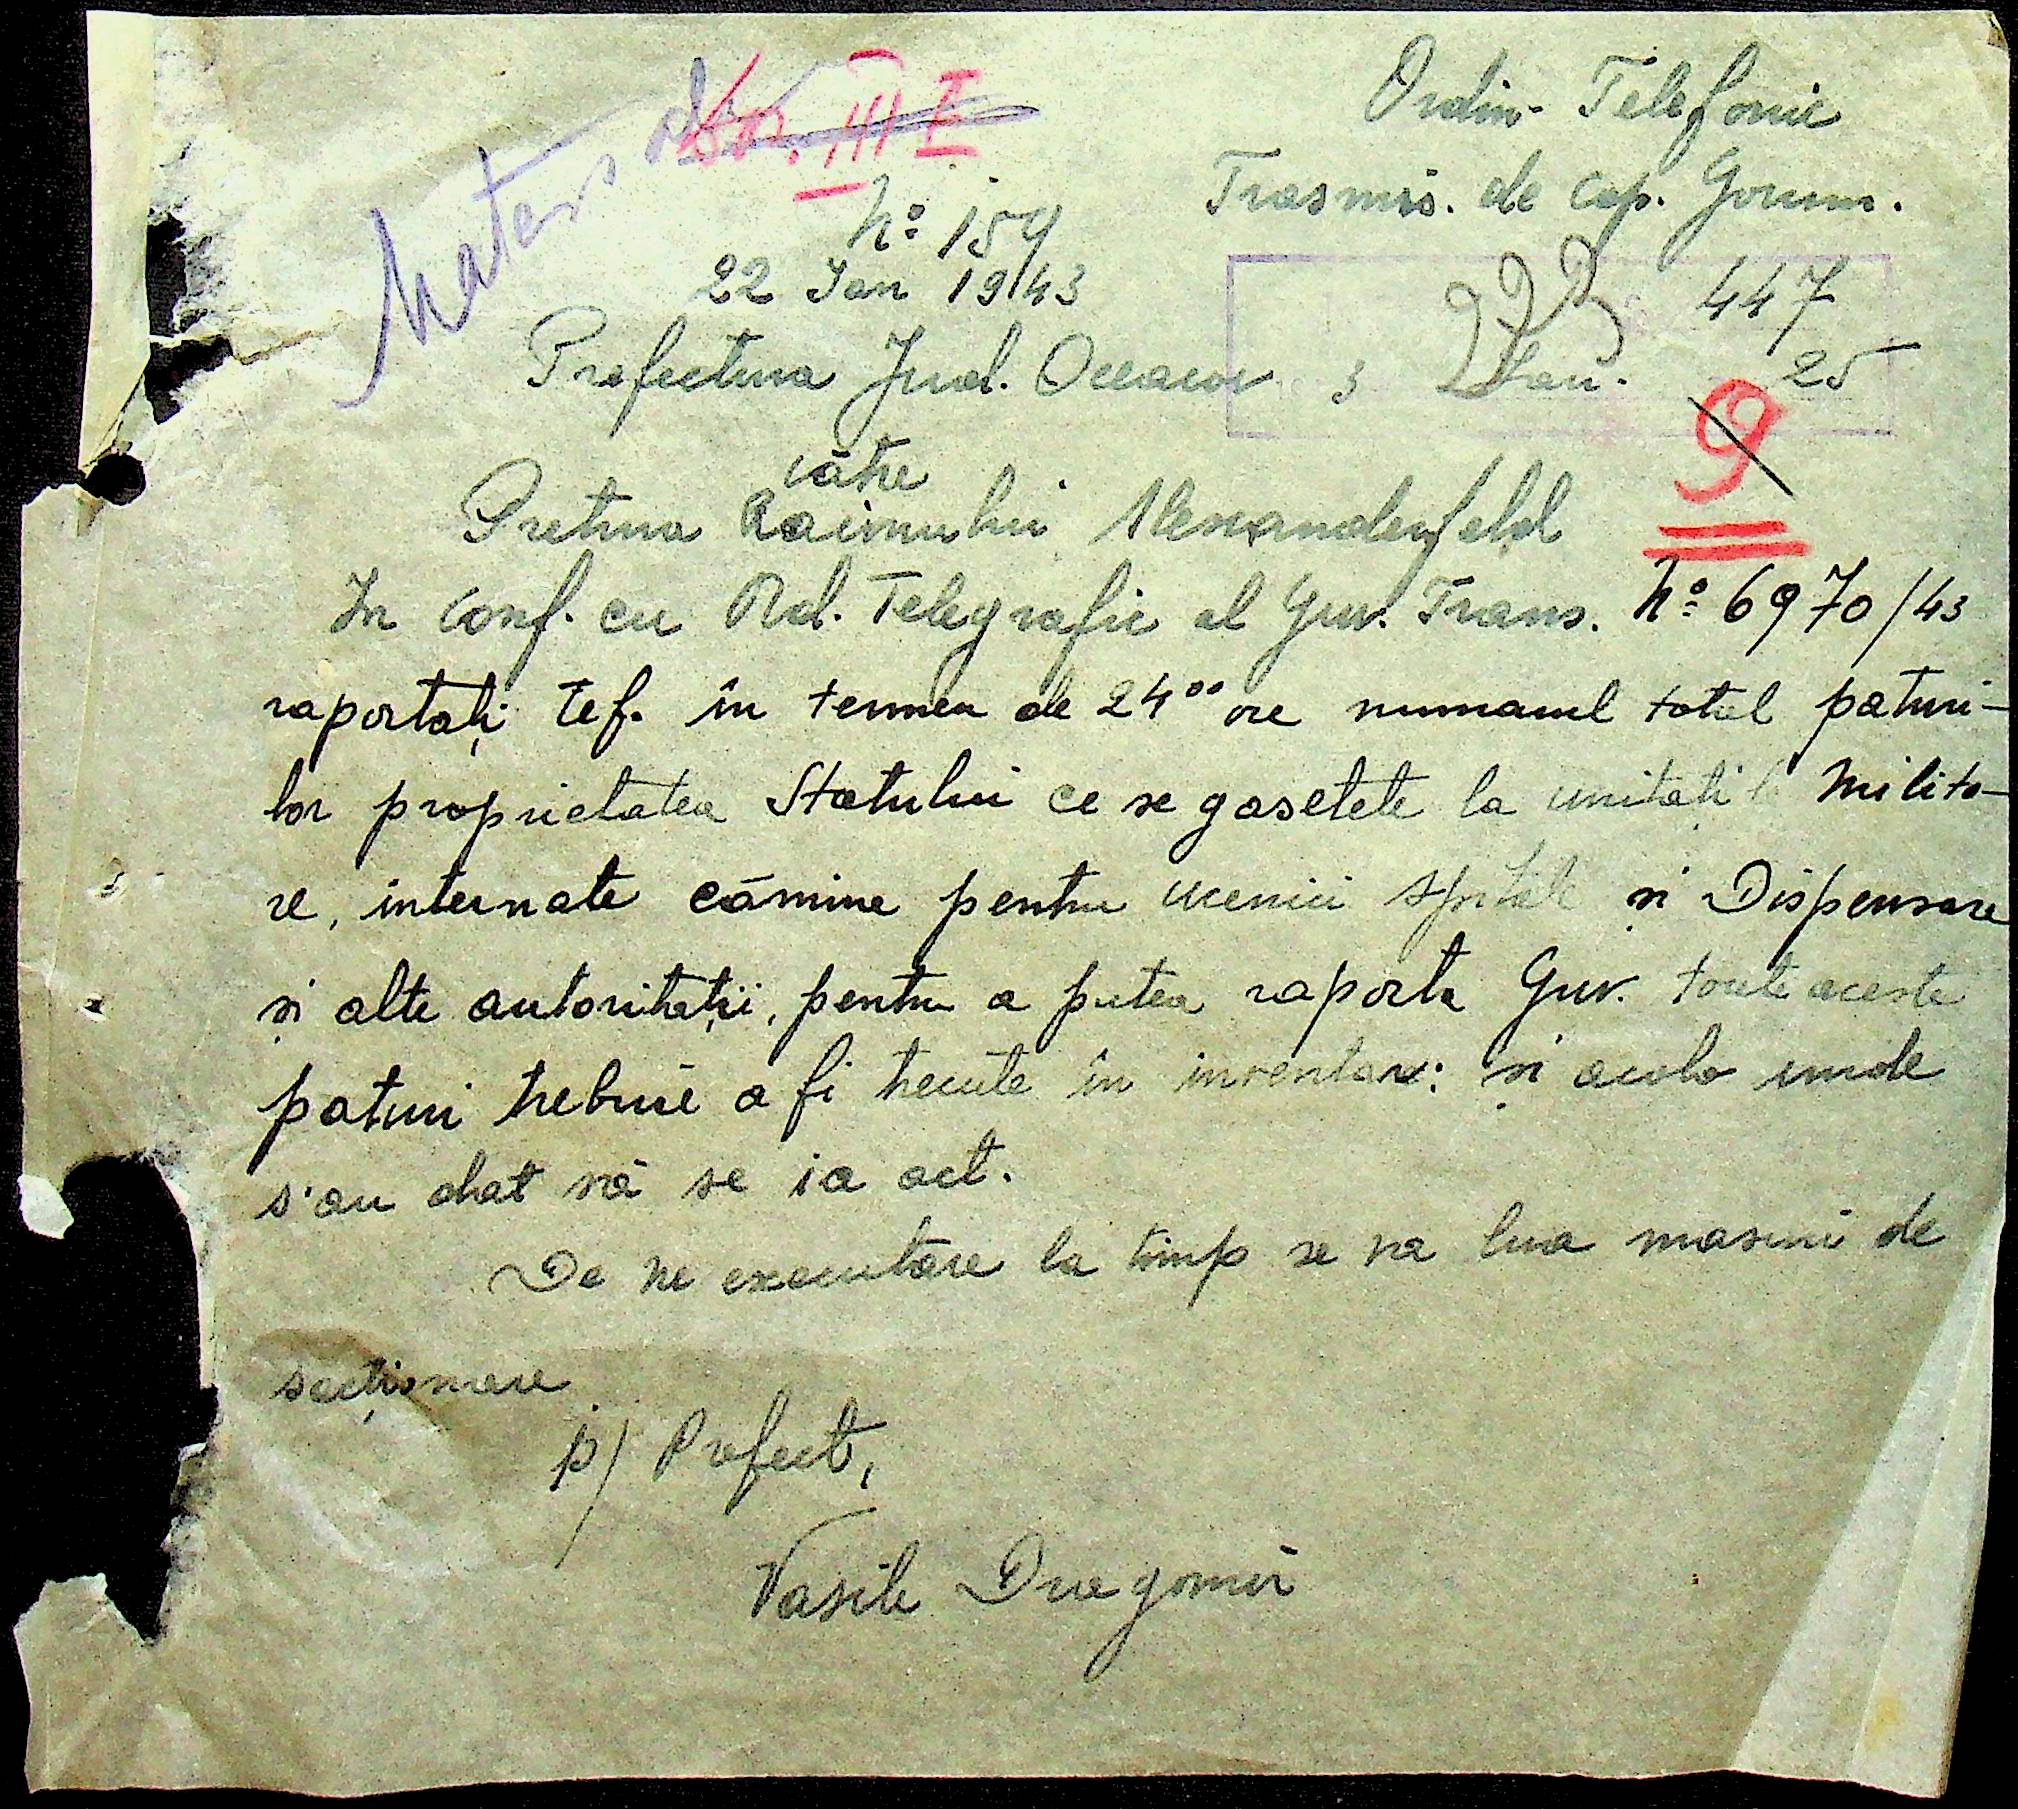 Ordin Telefonic
Trasmis. de cap. Gorun.
No 159
22 Ian 1943
447
Prefectura Jud. Oceacov
3 Ian. 25
9
către
Pretura Raionului Alexanderfeld
In conf. cu Od. Telegrafic al Guv. Trans. No 6970/43
raportați tef. în termen de 24°° ore numarul total paturi-
lor proprietatea Statului ce se gasetete la unitați Milita-
re, internate cămine pentru ucenici spitale și Dispensare
și alte autoritații, pentru a putea raporta Guv. toate aceste
paturi trebuie a fi trecute în inventar: și acolo unde
s'au dat să se ia act.
De ne executare la timp se va lua masuri de
sacționare
p/ Prefect,
Vasile Dragomir